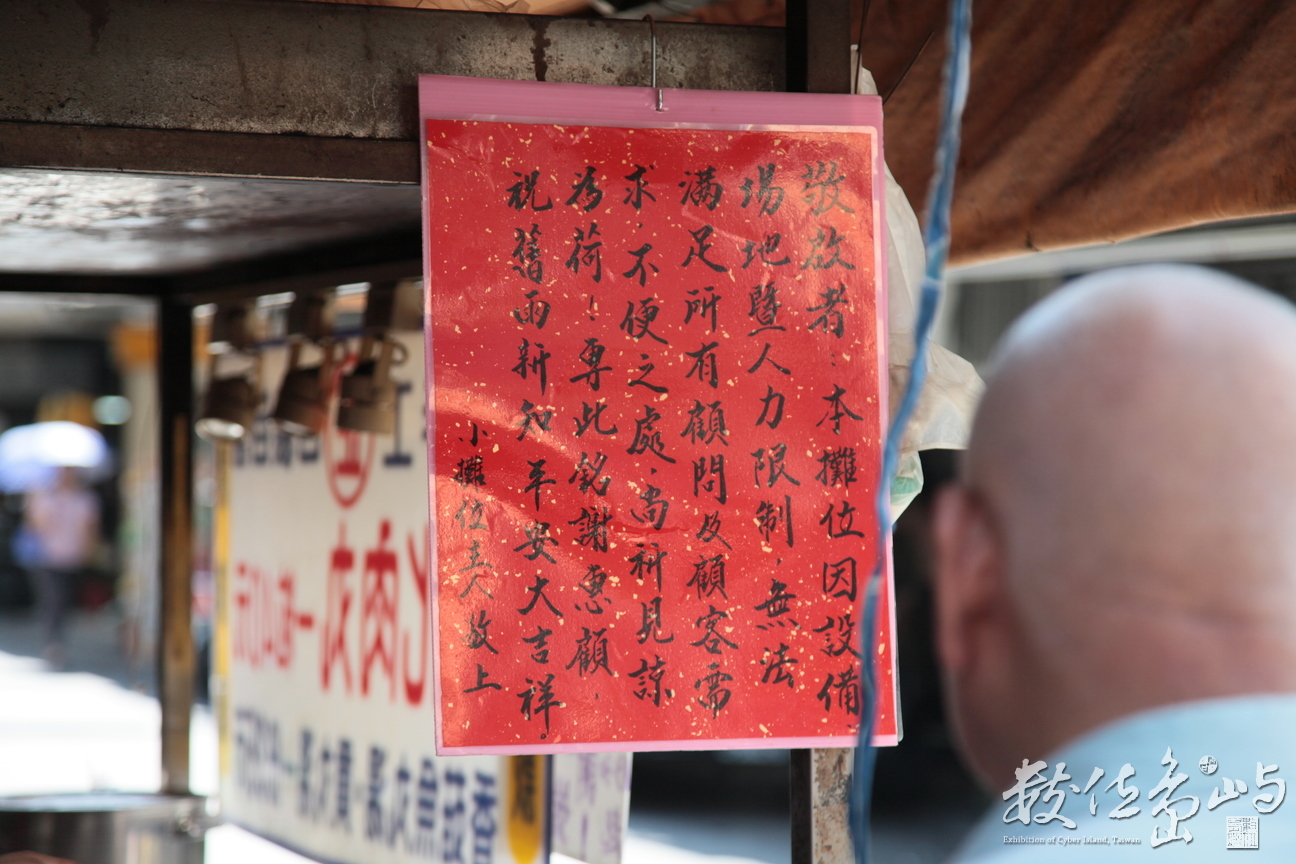 敬啟者：本攤位因設備、
場地暨人力限制，無法
滿足所有顧問及顧客需
求，不便之處，尚祈見諒
為荷！專此銘謝惠顧，
祝舊雨新知平安大吉祥。
小攤位主人敬上
數位島嶼
Exhibition of Cyber Island, Taiwan